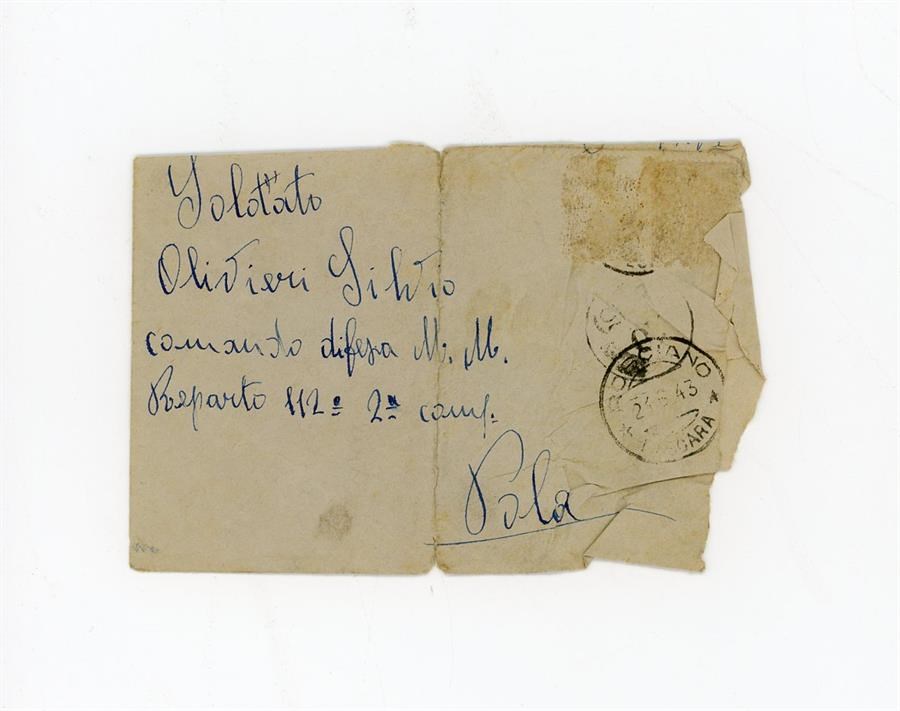 Soldato
Olivieri Silvio
comando difesa M. M.
Reparto 112º 2ª comp.
Pola
ROSCIANO
43
PESCARA